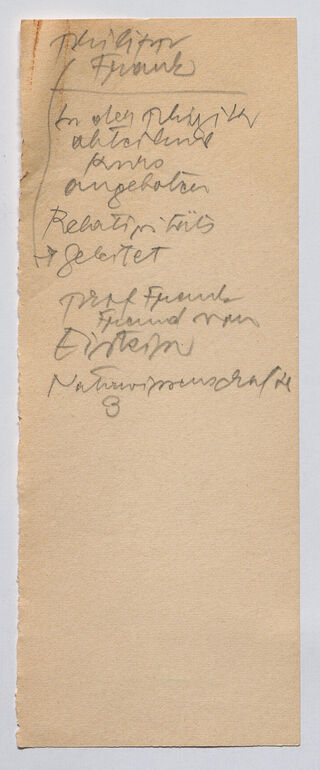 Philipp
Frank
In der Physik
abteilung
Kurs
angeboten
Relativitäts
→ geleitet
Prof Frank
Freund von
Einstein
Naturwissenschaftle